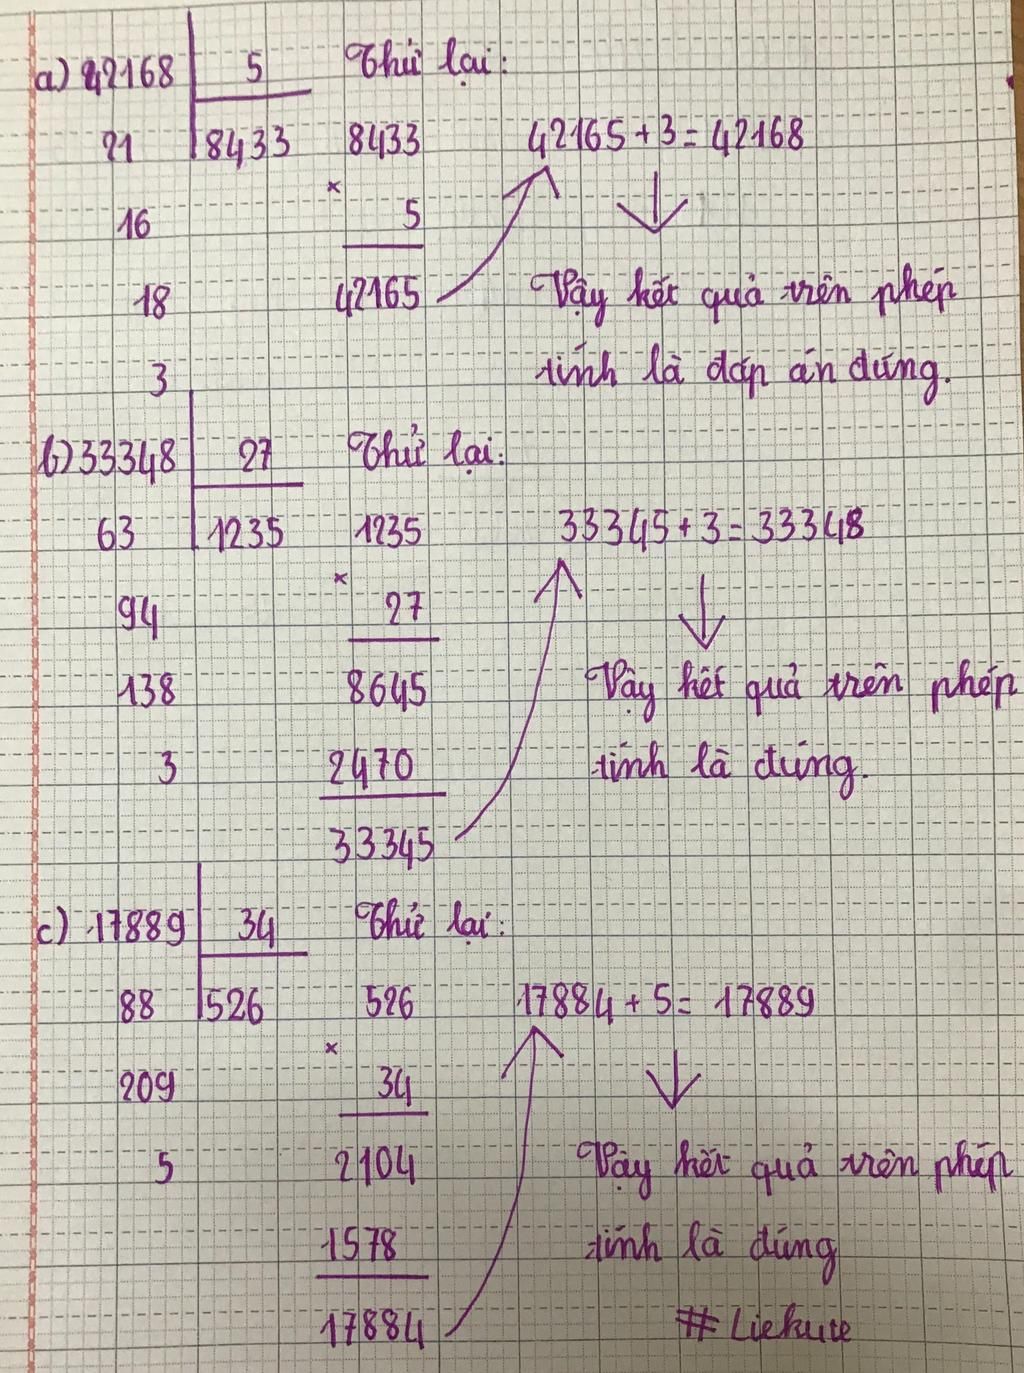 a) 42168 5 Thử lại:
21 8433 8433 42165 + 3 = 42168
× 5
16
18 42165 Vậy kết quả trên phép
3 tính là đáp án đúng.
b) 33348 27 Thử lại:
63 1235 1235 33345 + 3 = 33348
94 × 27
138 8645 Vậy kết quả trên phép
3 2470 tính là đúng.
33345
c) 17889 34 Thử lại:
88 526 526 17884 + 5 = 17889
209 × 34
5 2104 Vậy kết quả trên phép
1578 tính là đúng
17884 # Liekute